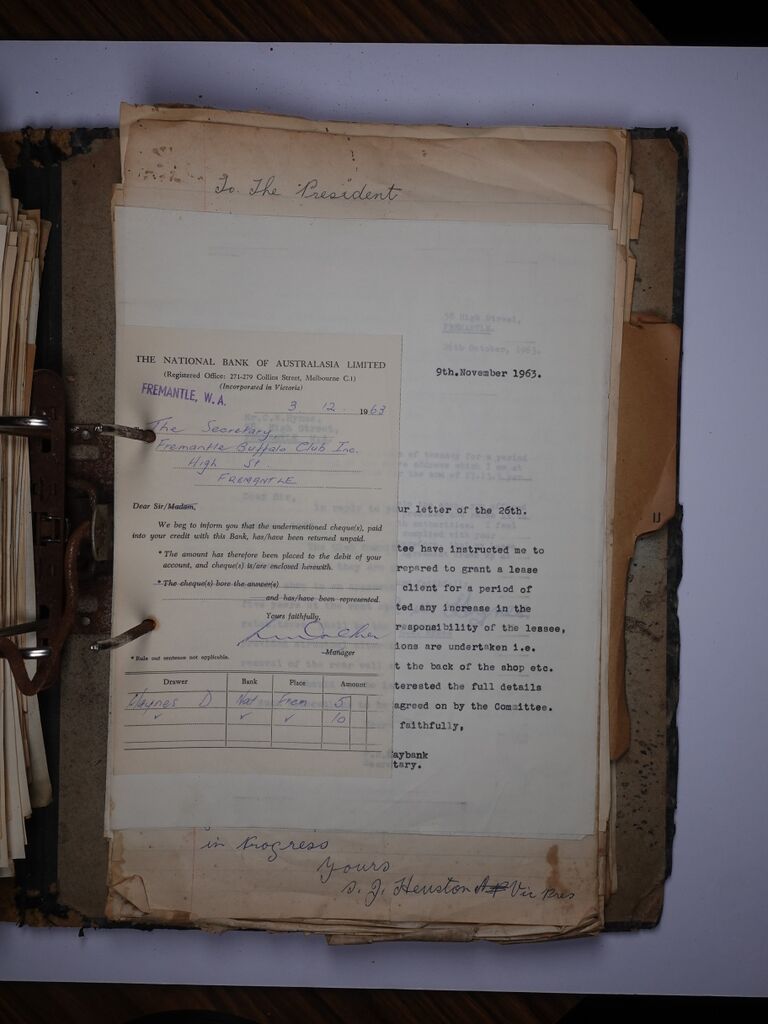 To. The President
THE NATIONAL BANK OF AUSTRALASIA LIMITED
(Registered Office: 271-279 Collins Street, Melbourne C.1)
(Incorporated in Victoria)
FREMANTLE, W. A.
3 12. 1963
The Secretary,
Fremantle Buffalo Club Inc.
High St.
FREMANTLE
Dear Sir/Madam,
We beg to inform you that the undermentioned cheque(s), paid
into your credit with this Bank, has/have been returned unpaid.
* The amount has therefore been placed to the debit of your
account, and cheque(s) is/are enclosed herewith.
* The cheque(s) bore the answer(s)
and has/have been represented.
Yours faithfully,
Manager
* Rule out sentence not applicable.
Drawer Bank Place Amount
Haynes D Nat Frem 5
10
38 High Street,
FREMANTLE.
26th October, 1963.
9th.November 1963.
Dear Sir,
in reply to
ur letter of the 26th.
tee have instructed me to
repared to grant a lease
client for a period of
ted any increase in the
responsibility of the lessee,
ions are undertaken i.e.
t the back of the shop etc.
terested the full details
agreed on by the Committee.
faithfully,
aybank
tary.
in Progress
Yours
S. J. Heuston Vic Pres